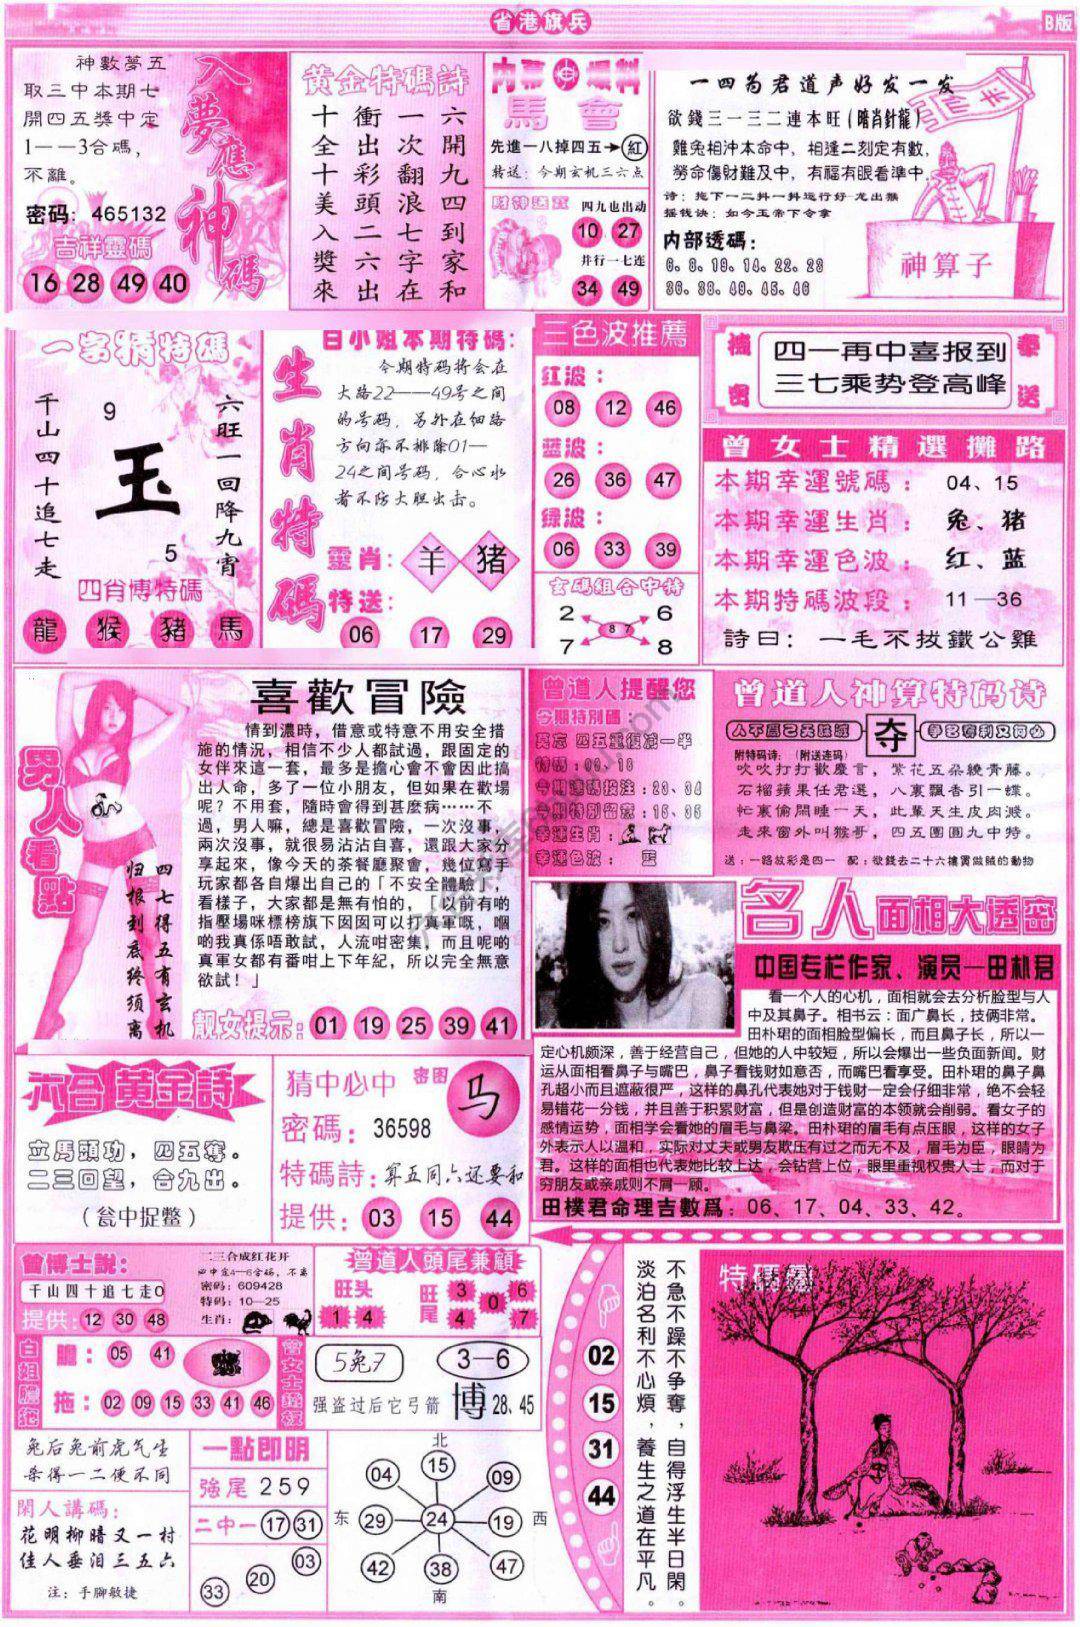 省港旗兵
B版
神數夢五
取三中本期七
開四五獎中定
1——3合碼，
不離。
密码：465132
吉祥靈碼
16 28 49 40
入夢應神碼
黄金特碼詩
六開九四到家和
一次翻浪七字在
衝出彩頭二六出
十全十美入獎來
内幕 爆料
馬會
先進一八掉四五→紅
转送：今期玄机三六点
財神送宝
四九也出动
10 27
并行一七連
34 49
一四为君道声好发一发
欲錢三一三二連本旺(瞻肖針龍)
雞兔相沖本命中，相逢二刻定有數，
勞命傷財難及中，有福有眼看準中，
诗：拖下一二抖一抖运行好 龙出猴
摇钱诀：如今玉帝下令拿
内部透碼：
神算子
一字猜特碼
六旺一回降九宵
9
玉
5
千山四十追七走
四肖博特碼
龍 猴 豬 馬
生肖特碼
白小姐本期特碼：
今期特码将会在
大路22——49号之间
的号码，另外在细路
方向亦不排除01—
24之间号码，合心水
者不防大胆出击。
靈肖：羊 猪
特送：
06 17 29
三色波推薦
红波：
08 12 46
蓝波：
26 36 47
绿波：
06 33 39
玄碼組合中特
2 6
8 7
7 8
四一再中喜报到
三七乘势登高峰
曾女士精選攤路
本期幸運號碼：04、15
本期幸運生肖：兔、猪
本期幸運色波：红、蓝
本期特碼波段：11—36
詩曰：一毛不拔鐵公雞
男人看點
四七得五有玄机
归根到底终须离
喜歡冒險
情到濃時，借意或特意不用安全措
施的情況，相信不少人都試過，跟固定的
女伴來這一套，最多是擔心會不會因此搞
出人命，多了一位小朋友，但如果在歡場
呢？不用套，隨時會得到甚麼病……不
過，男人嘛，總是喜歡冒險，一次沒事，
兩次沒事，就很易沾沾自喜，還跟大家分
享起來，像今天的茶餐厅聚會，幾位寫手
玩家都各自爆出自己的「不安全體驗」，
看樣子，大家都是無有怕的，「以前有啲
指壓場咪標榜旗下囡囡可以打真軍嘅，嗰
啲我真係唔敢試，人流咁密集，而且呢啲
真軍女都有番咁上下年紀，所以完全無意
欲試！」
靓女提示：01 19 25 39 41
曾道人提醒您
今期特別碼：
莫忘 四五重復减一半
幸運生肖：
幸運色波： 蓝
曾道人神算特码诗
夺
附特码诗：（附送连码）
吹吹打打歡慶言，繁花五朵繞青藤。
石榴蘋果任君選，八裏飘香引一蝶。
忙裏偷閒睡一天，此輩天生皮肉溅。
走來窗外叫猴哥，四五團圓九中特。
送：一路放彩是四一 配：欲錢去二十六樓買做賊的動物
名人面相大透密
中国专栏作家、演员—田朴君
看一个人的心机，面相就会去分析脸型与人
中及其鼻子。相书云：面广鼻长，技俩非常。
田朴珺的面相脸型偏长，而且鼻子长，所以一
定心机颇深，善于经营自己，但她的人中较短，所以会爆出一些负面新闻。财
运从面相看鼻子与嘴巴，鼻子看钱财如意否，而嘴巴看享受。田朴珺的鼻子鼻
孔超小而且遮蔽很严，这样的鼻孔代表她对于钱财一定会仔细非常，绝不会轻
易错花一分钱，并且善于积累财富，但是创造财富的本领就会削弱。看女子的
感情运势，面相学会看她的眉毛与鼻梁。田朴珺的眉毛有点压眼，这样的女子
外表示人以温和，实际对丈夫或男友欺压有过之而无不及，眉毛为臣，眼睛为
君。这样的面相也代表她比较上达，会钻营上位，眼里重视权贵人士，而对于
穷朋友或亲戚则不屑一顾。
田樸君命理吉數爲：06、17、04、33、42。
六合黄金詩
立馬頭功，四五奪。
二三回望，合九出。
（瓮中捉鳖）
猜中必中 密图
马
密碼：36598
特碼詩：算五同六还要和
提供：03 15 44
曾博士説：
千山四十追七走0
提供：12 30 48
二三合成红花开
必中定4—6合码，不离
密码：609428
特码：10—25
生肖：
曾道人頭尾兼顧
旺头
1 4
旺尾
3 6
0
4 7
白姐膽拖
膽：05 41
拖：02 09 15 33 41 46
5兔7
3—6
强盗过后它弓箭
博 28、45
兔后兔前虎气生
杂得一二便不同
閑人講碼：
花明柳暗又一村
佳人垂泪三五六
注：手腳敏捷
一點即明
強尾 259
二中一 17 31
03
20
33
北
15
04 09
东 29 24 19 西
42 38 47
南
02
15
31
44
不急不躁不争奪，自得浮生半日閑。
淡泊名利不心煩，養生之道在平凡。
特碼圖